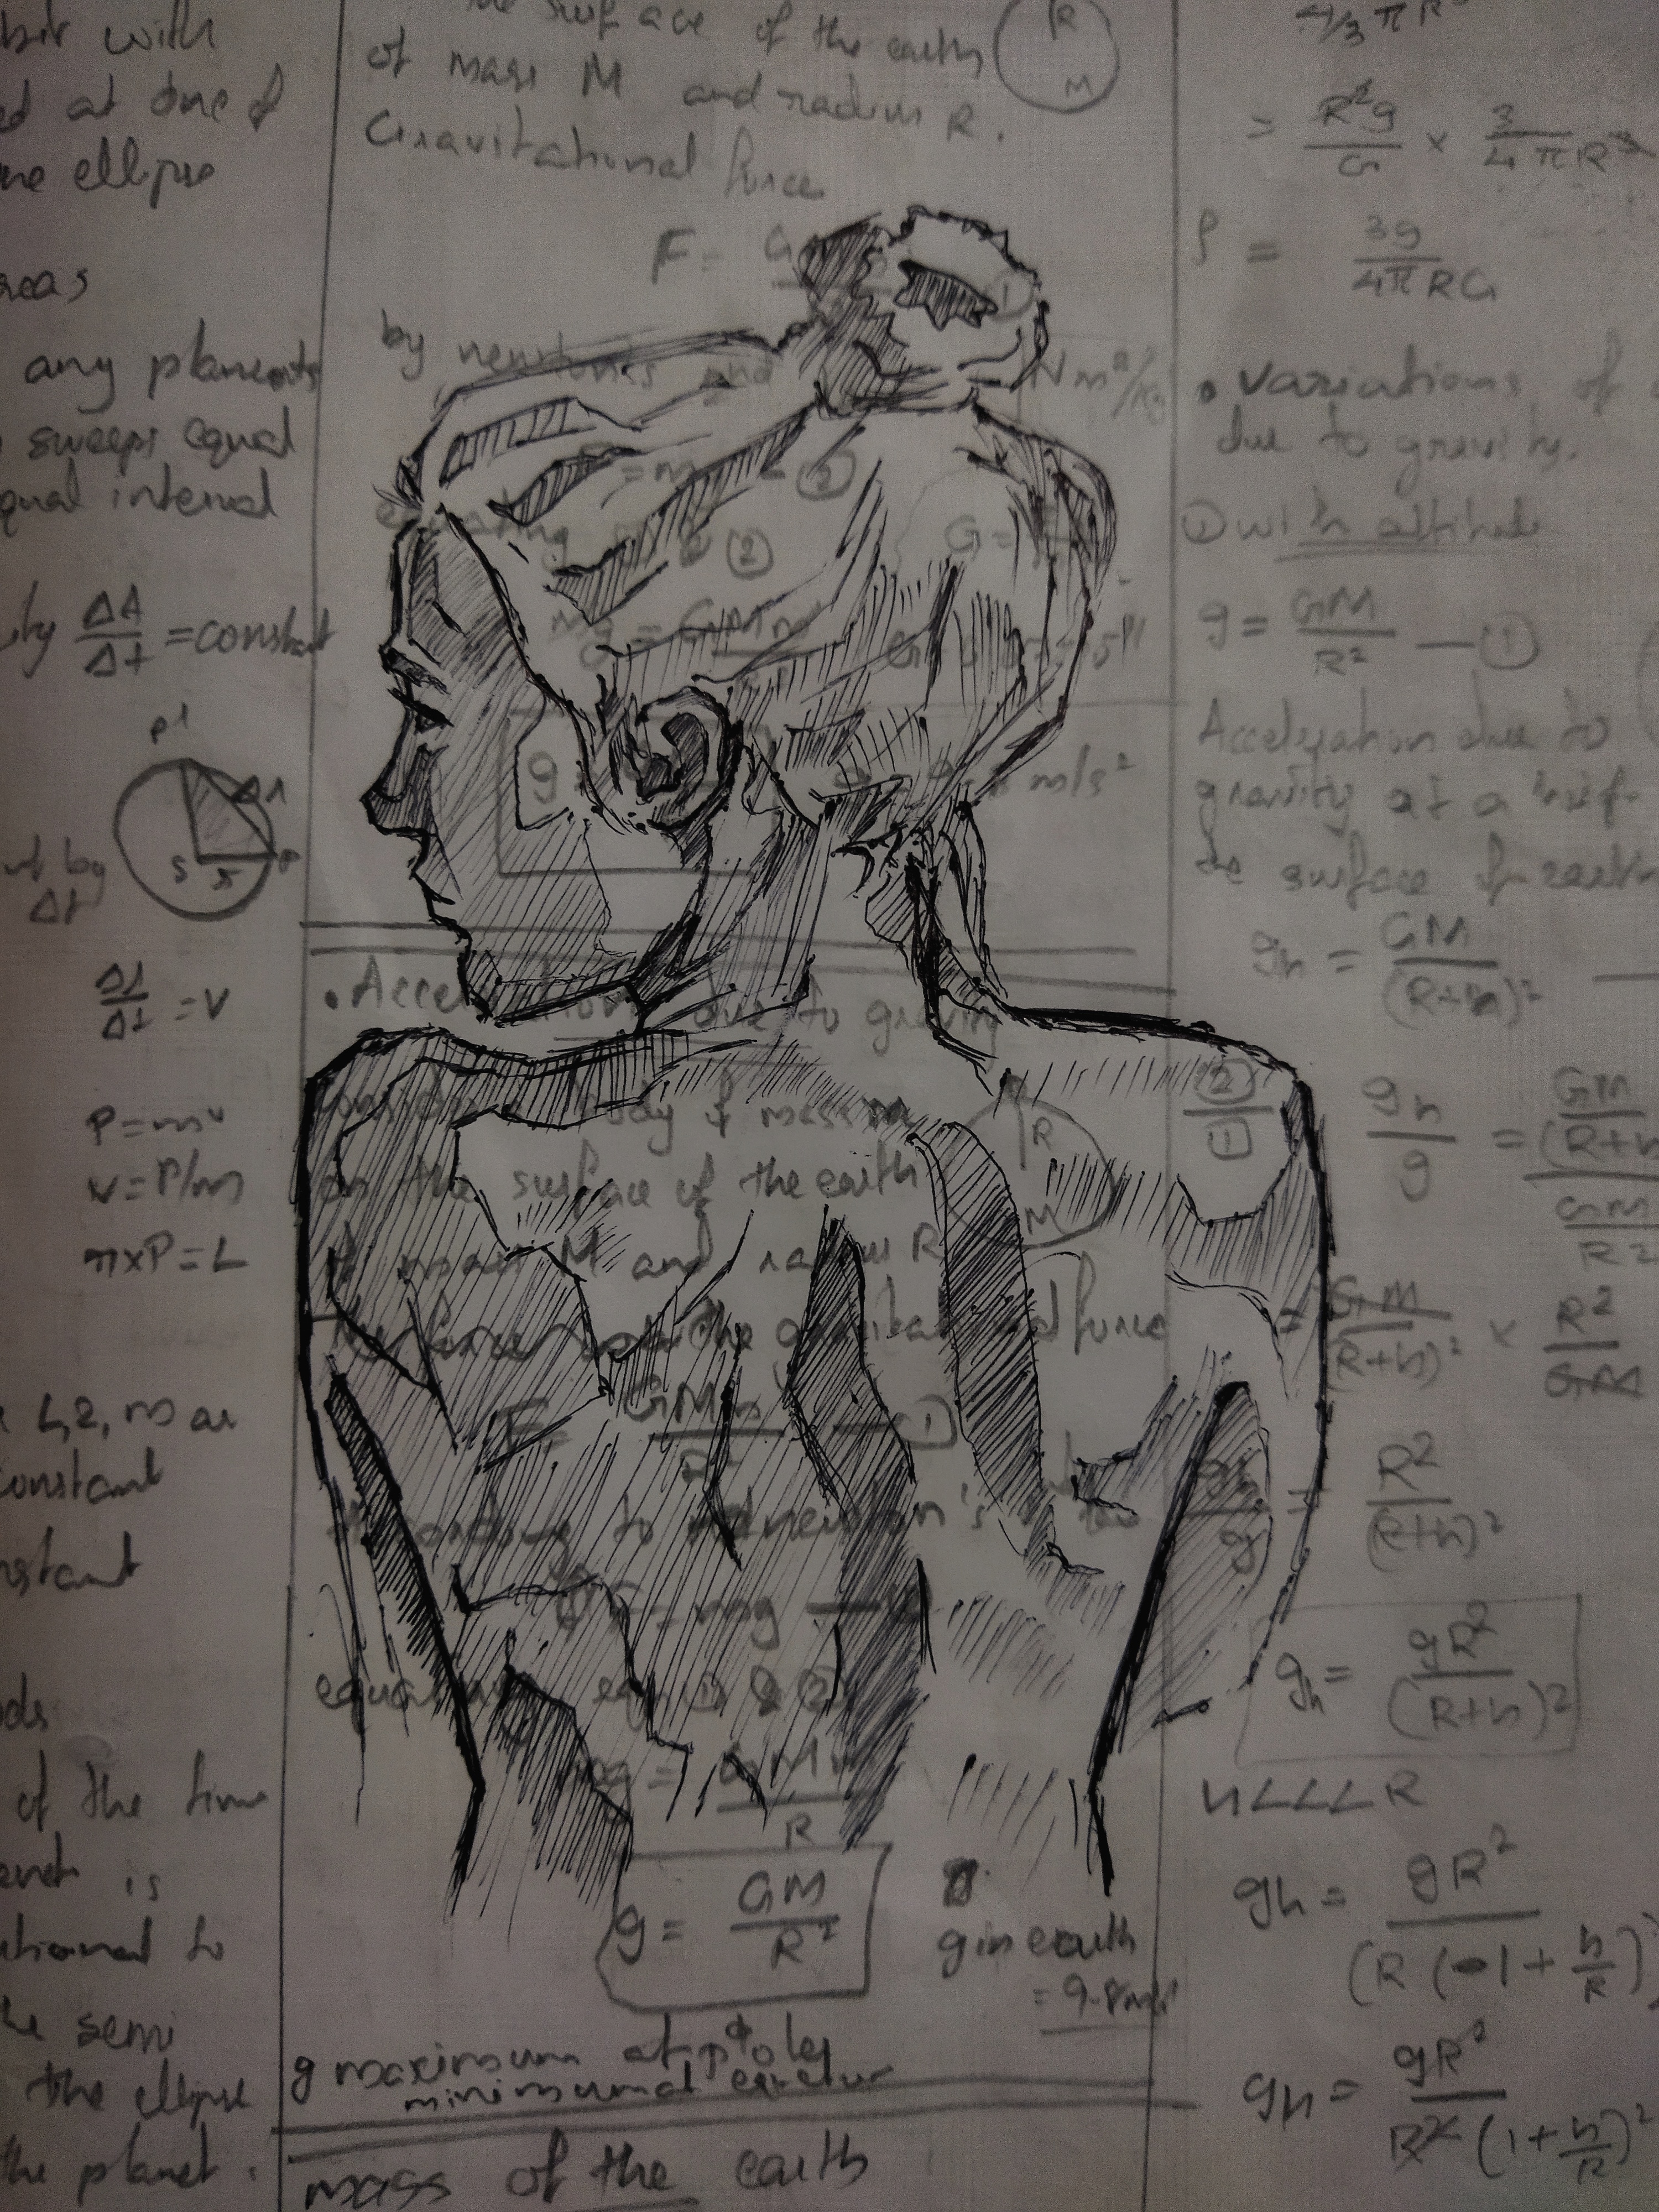 bit with
ed at one of
ellipse
reas
any planets
sweeps equal
qual interval
ΔA/Δt = constant
P1
ΔA
S
r
by
Δt
= V
P = mv
v = P/m
r×P = L
L, 2, m are
constant
nstant
ods
of the time
is
to
semi
the ellipse
the planet.
surface of the earth
of mass M and radius R.
Gravitational force
R
M
F = G
①
by newton's 2nd
= m ②
②
mg = GMm
g
m/s²
Nm²/kg
G =
• Acceleration due to gravity
body of mass m
on the surface of the earth
of mass M and radius R
R
M
the gravitational force
F = GMm — ①
According to newton's law
F = mg —
equating eqn ① & ②
mg = GMm
R
g = GM/R²
g in earth
= 9.8m/s²
g maximum at poles
minimum at equator
mass of the earth
4/3 πR³
= R²g/G × 3/4πR³
ρ = 3g/4πRG
• variations of
due to gravity.
① with altitude
g = GM/R² — ①
Acceleration due to
gravity at a
surface of earth
gh = GM/(R+h)² —
②/① gh/g = GM/(R+h / GM/R2
= GM/(R+h)² × R²/GM
gh/g = R²/(R+h)²
gh = gR²/(R+h)2
h<<<R
gh = gR²/(R(1+h/R)
gh = gR²/R²(1+h/R)²